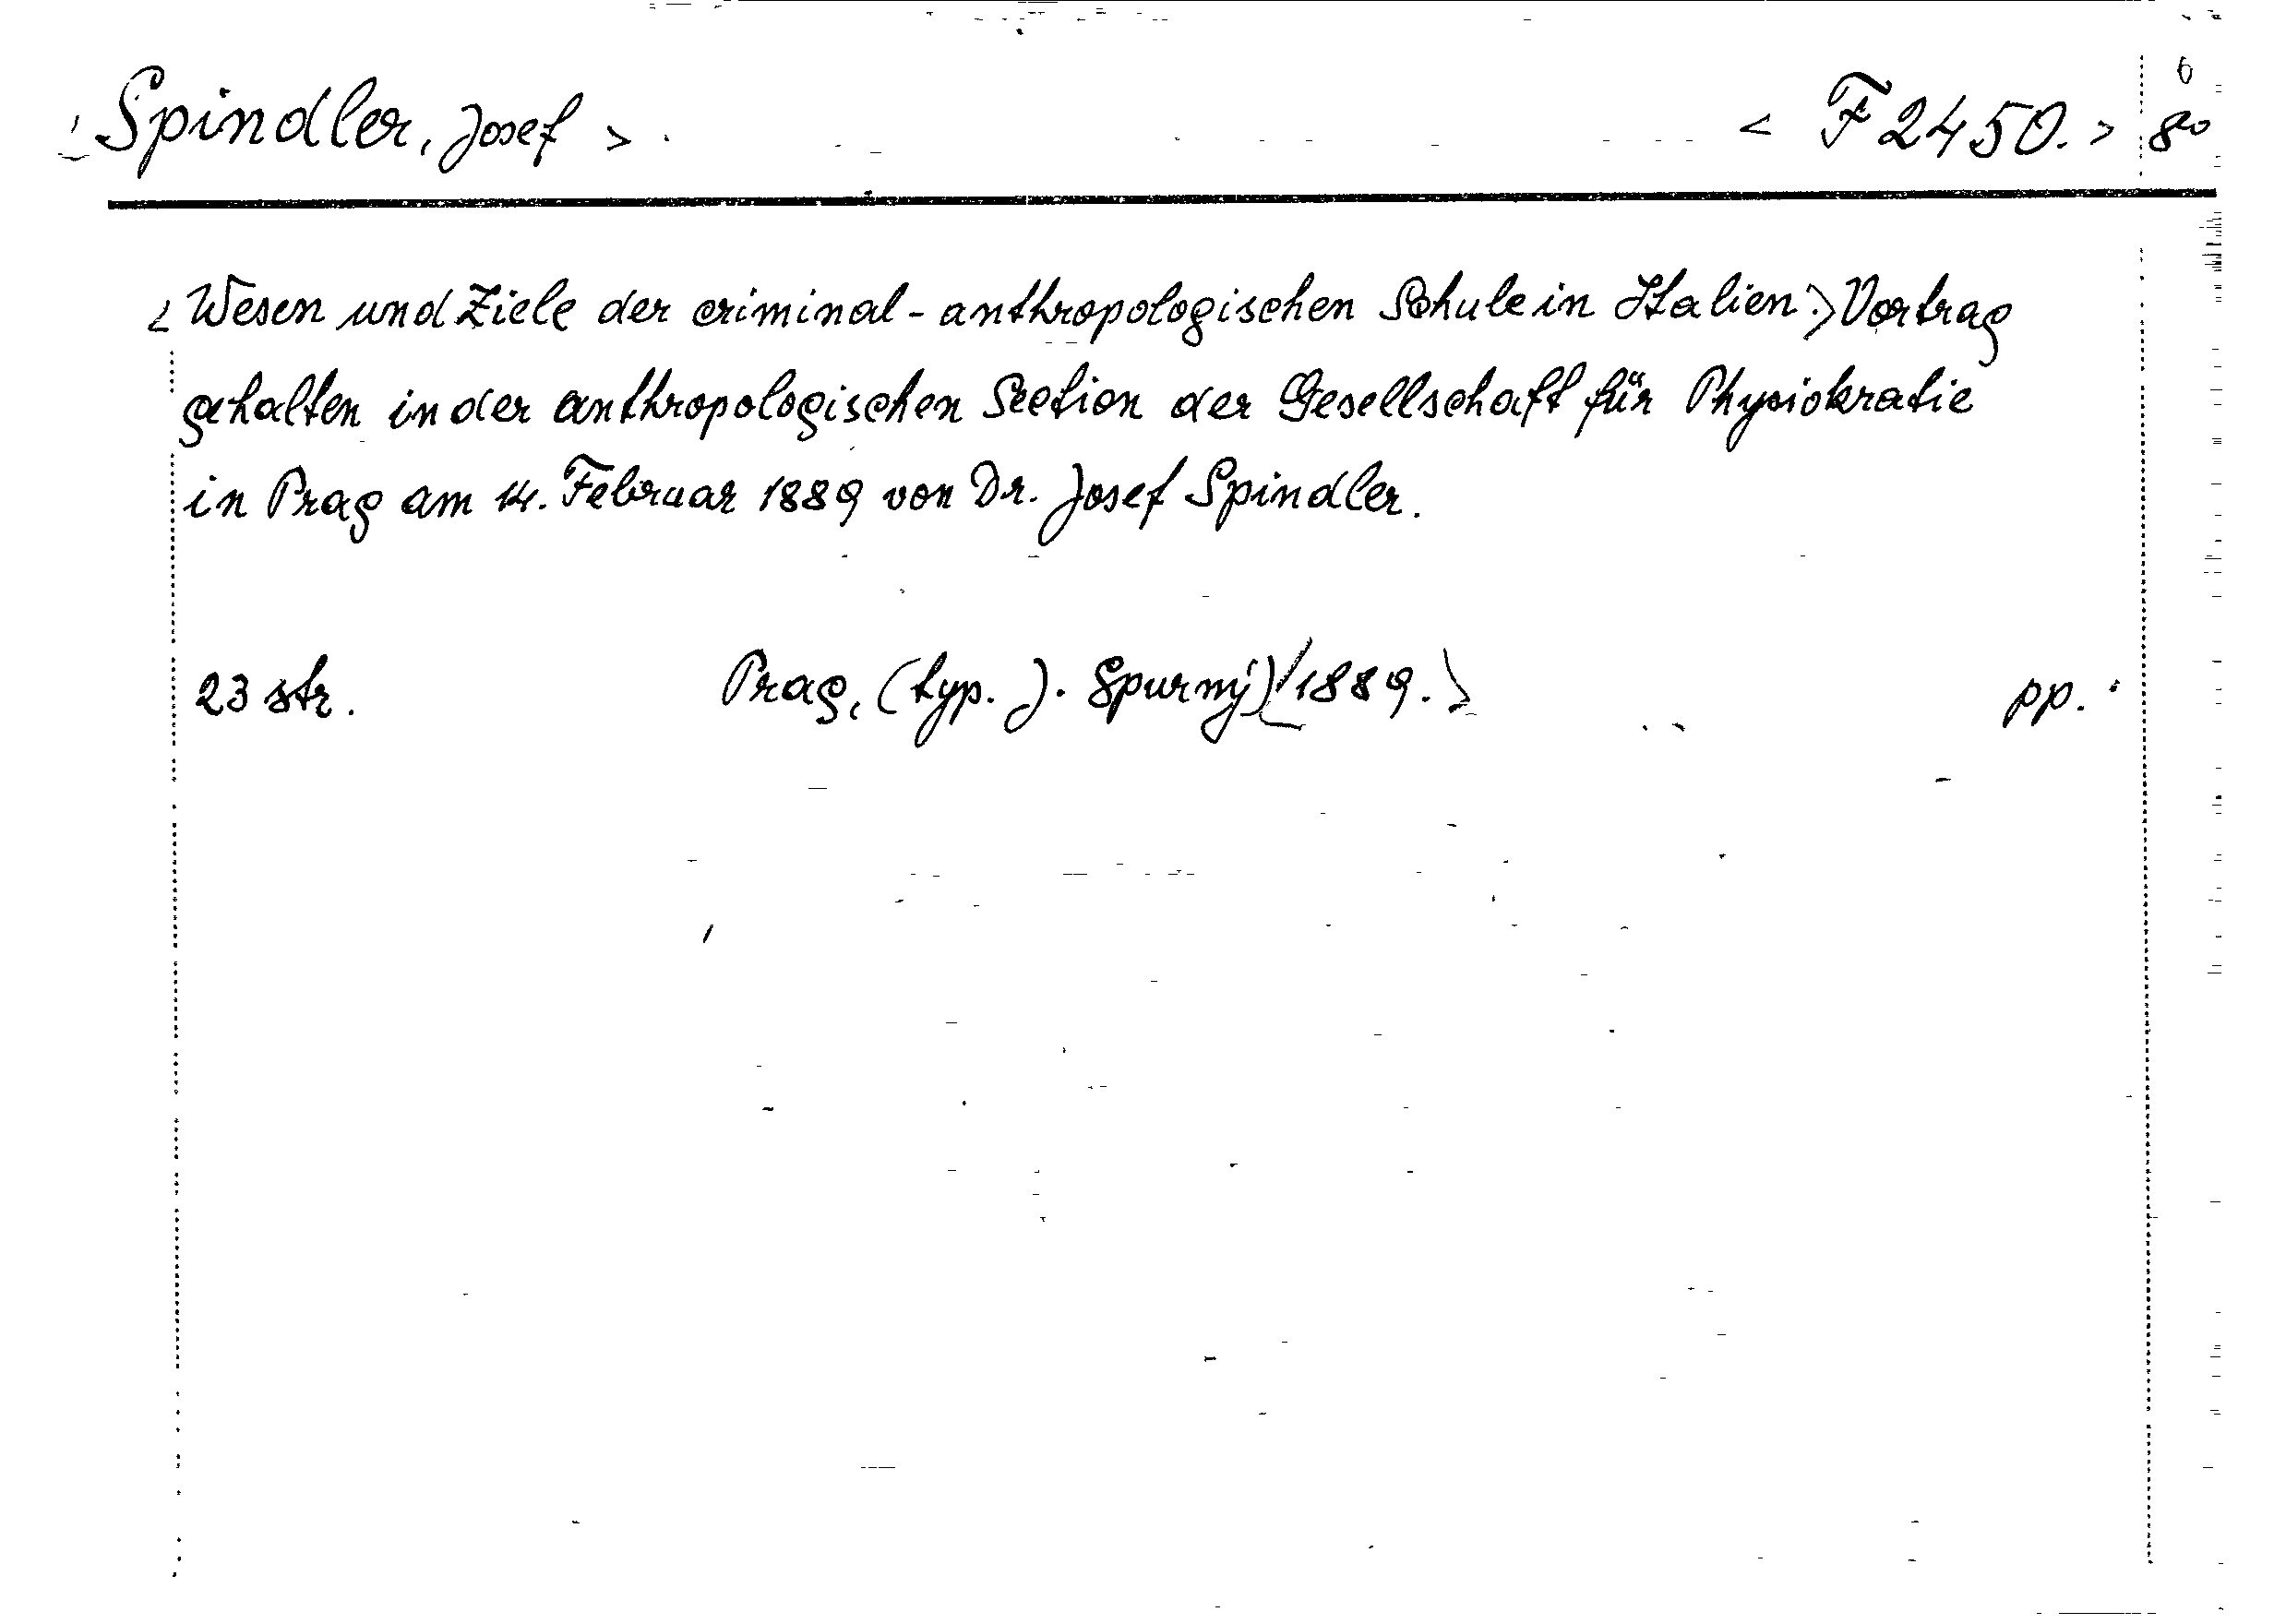 < Spindler, Josef > < F 2450. > 8°
< Wesen und Ziele der criminal-anthropologischen Schule in Italien.> Vortrag
gehalten in der anthropologischen Section der Gesellschaft für Physiokratie
in Prag am 14. Februar 1889 von Dr. Josef Spindler.
23 str. Prag, (typ. J. Spurný) <1889.> pp.